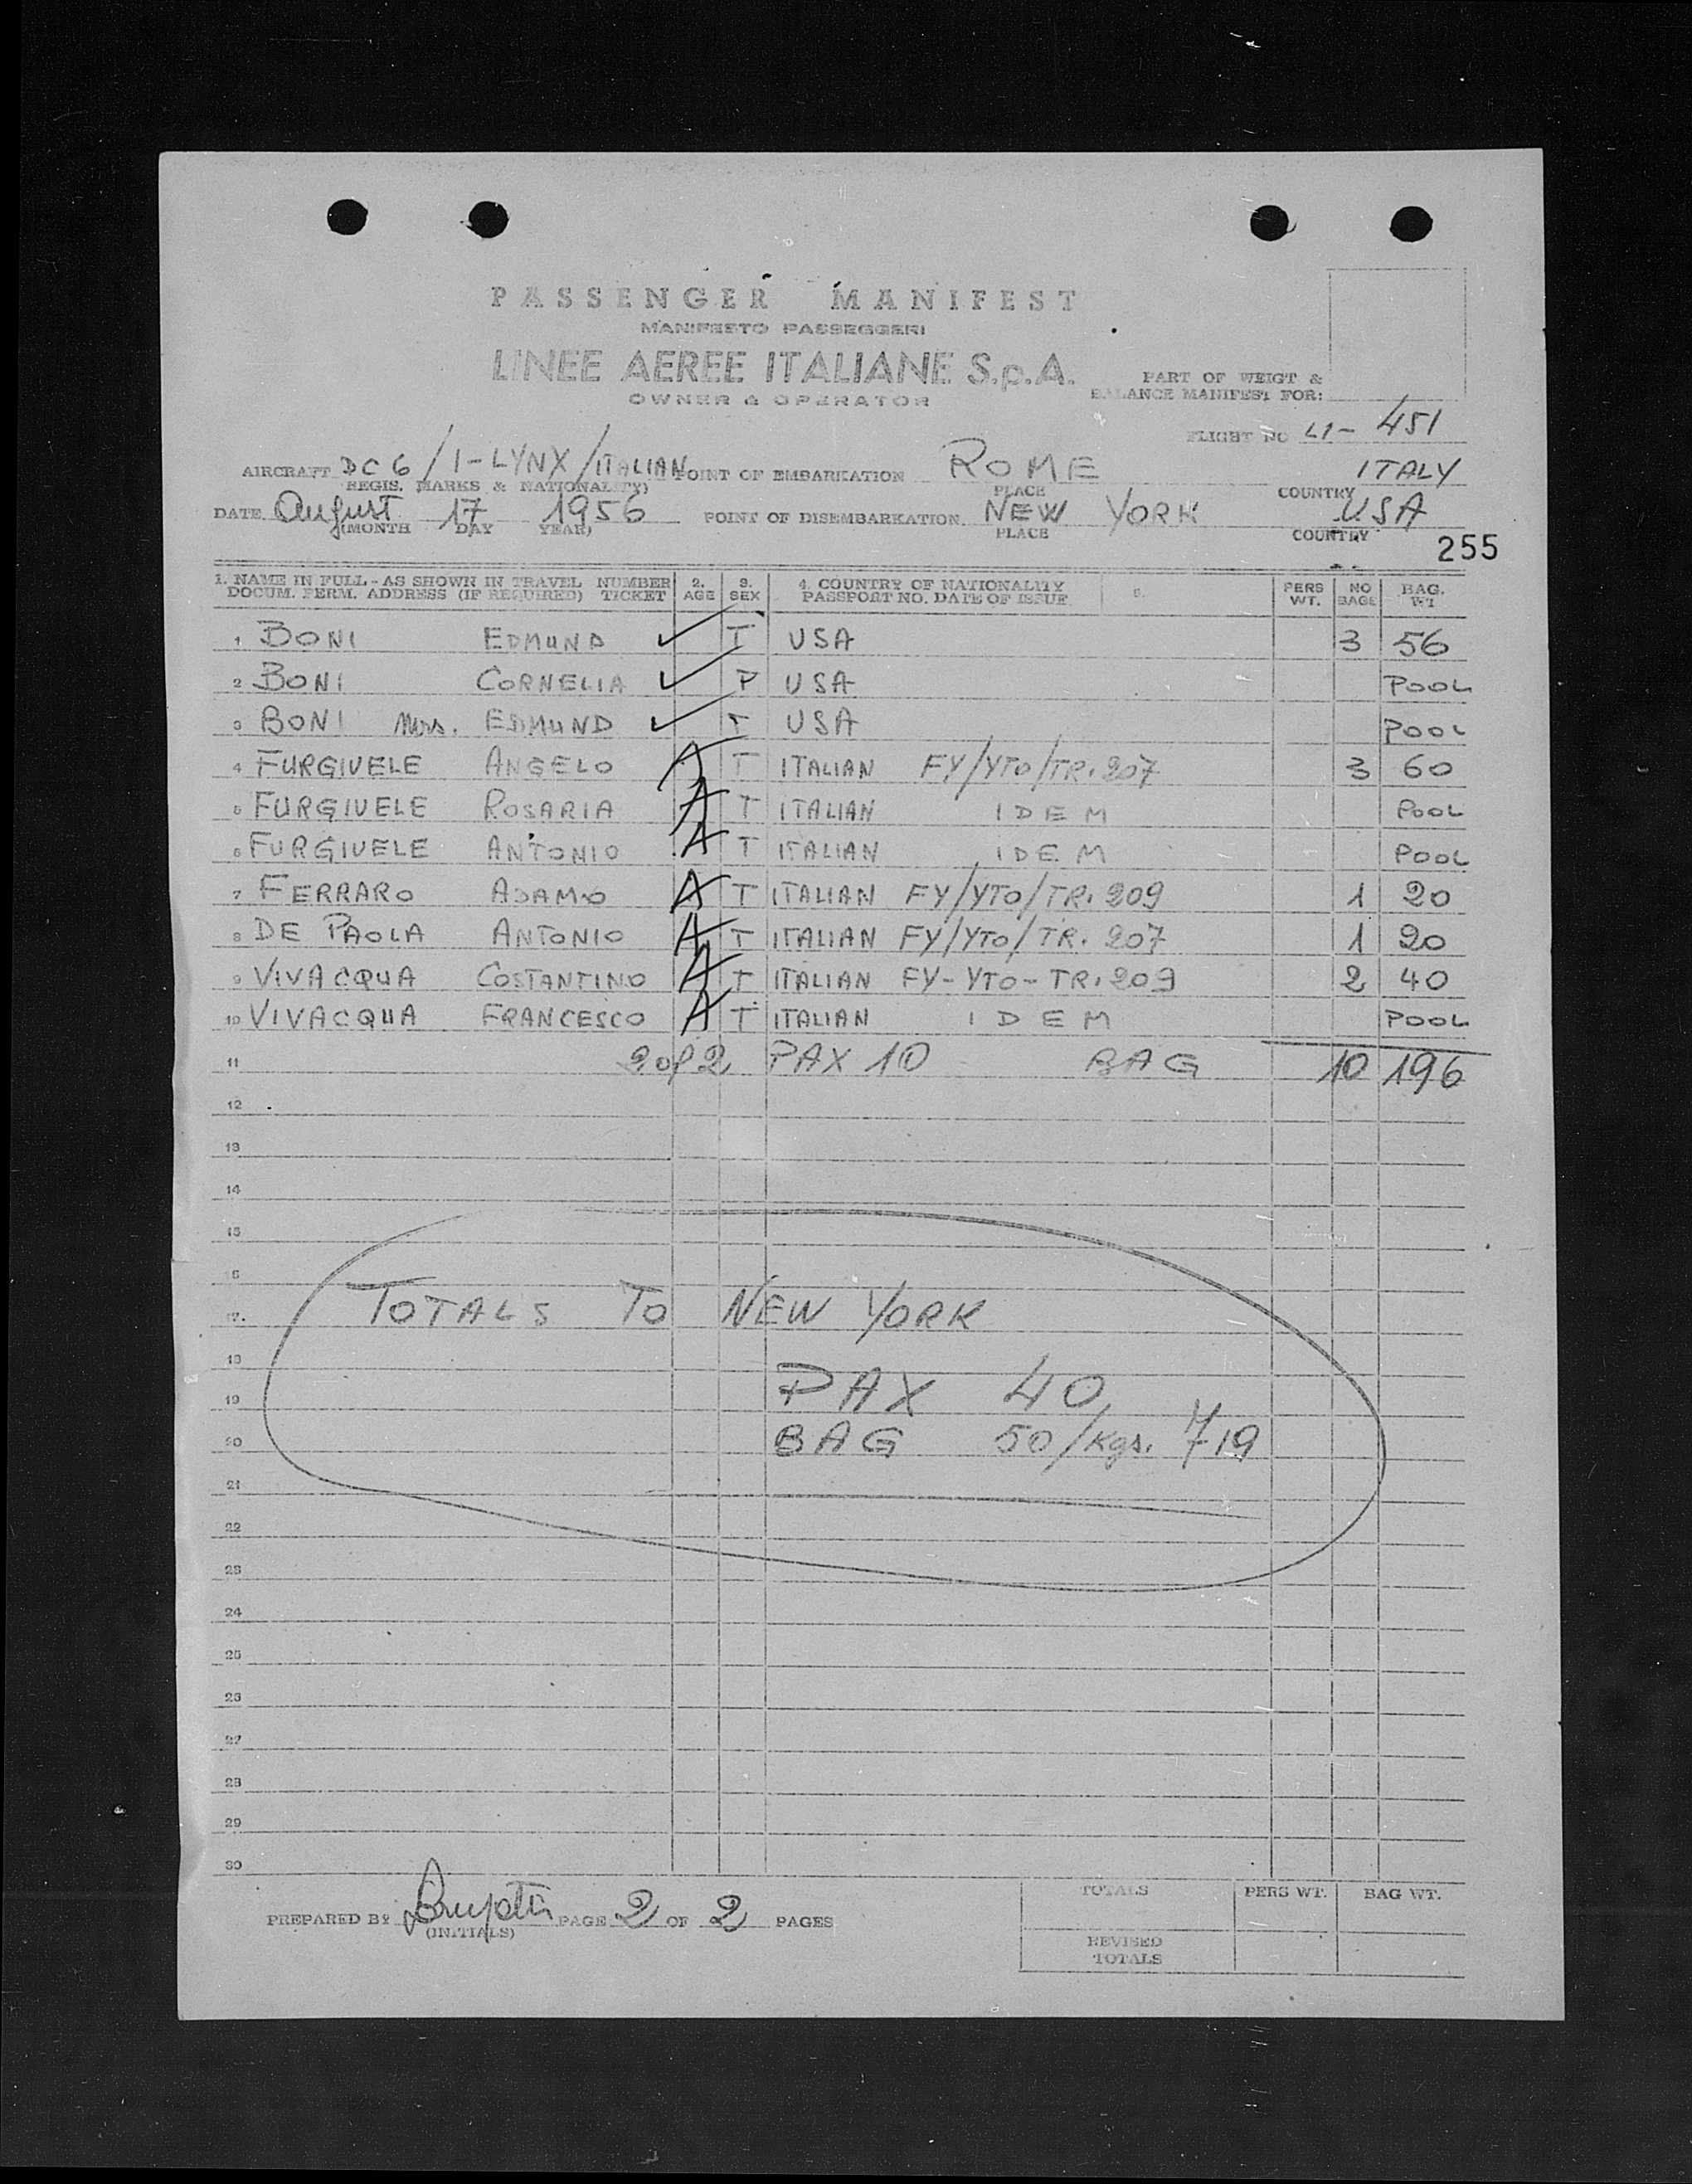 PASSENGER MANIFEST
MANIFESTO PASSEGGERI
LINEE AEREE ITALIANE S.p.A.
OWNER & OPERATOR
PART OF WEIGT &
BALANCE MANIFEST FOR:
FLIGHT NO LI- 451
AIRCRAFT DC6/I-LYNX/ITALIAN POINT OF EMBARKATION ROME ITALY
REGIS. MARKS & NATIONALITY) PLACE COUNTRY
DATE August 17 1956 POINT OF DISEMBARKATION NEW YORK USA
(MONTH DAY YEAR) PLACE COUNTRY
255
1. NAME IN FULL - AS SHOWN IN TRAVEL NUMBER 2. 3. 4. COUNTRY OF NATIONALITY 5. PERS NO BAG.
DOCUM. PERM. ADDRESS (IF REQUIRED) TICKET AGE SEX PASSPORT NO. DATE OF ISSUE WT. BAGS WT
1 BONI EDMUND ✓ T USA 3 56
2 BONI CORNELIA ✓ P USA POOL
3 BONI Mrs. EDMUND ✓ T USA POOL
4 FURGIUELE ANGELO A T ITALIAN FY/YTO/TR. 207 3 60
5 FURGIUELE ROSARIA A T ITALIAN IDEM POOL
6 FURGIUELE ANTONIO A T ITALIAN IDEM POOL
7 FERRARO ADAMO A T ITALIAN FY/YTO/TR. 209 1 20
8 DE PAOLA ANTONIO A T ITALIAN FY/YTO/TR. 207 1 20
9 VIVACQUA COSTANTINO A T ITALIAN FY-YTO-TR. 209 2 40
10 VIVACQUA FRANCESCO A T ITALIAN IDEM POOL
11 2 of 2 PAX 10 BAG 10 196
12
13
14
15
6
17. TOTALS TO NEW YORK
18
19 PAX 40
20 BAG 50/Kgs. 719
21
22
23
24
25
26
27
28
29
30
TOTALS PERS WT. BAG WT.
PREPARED BY PAGE 2 OF 2 PAGES
(INITIALS)
REVISED
TOTALS